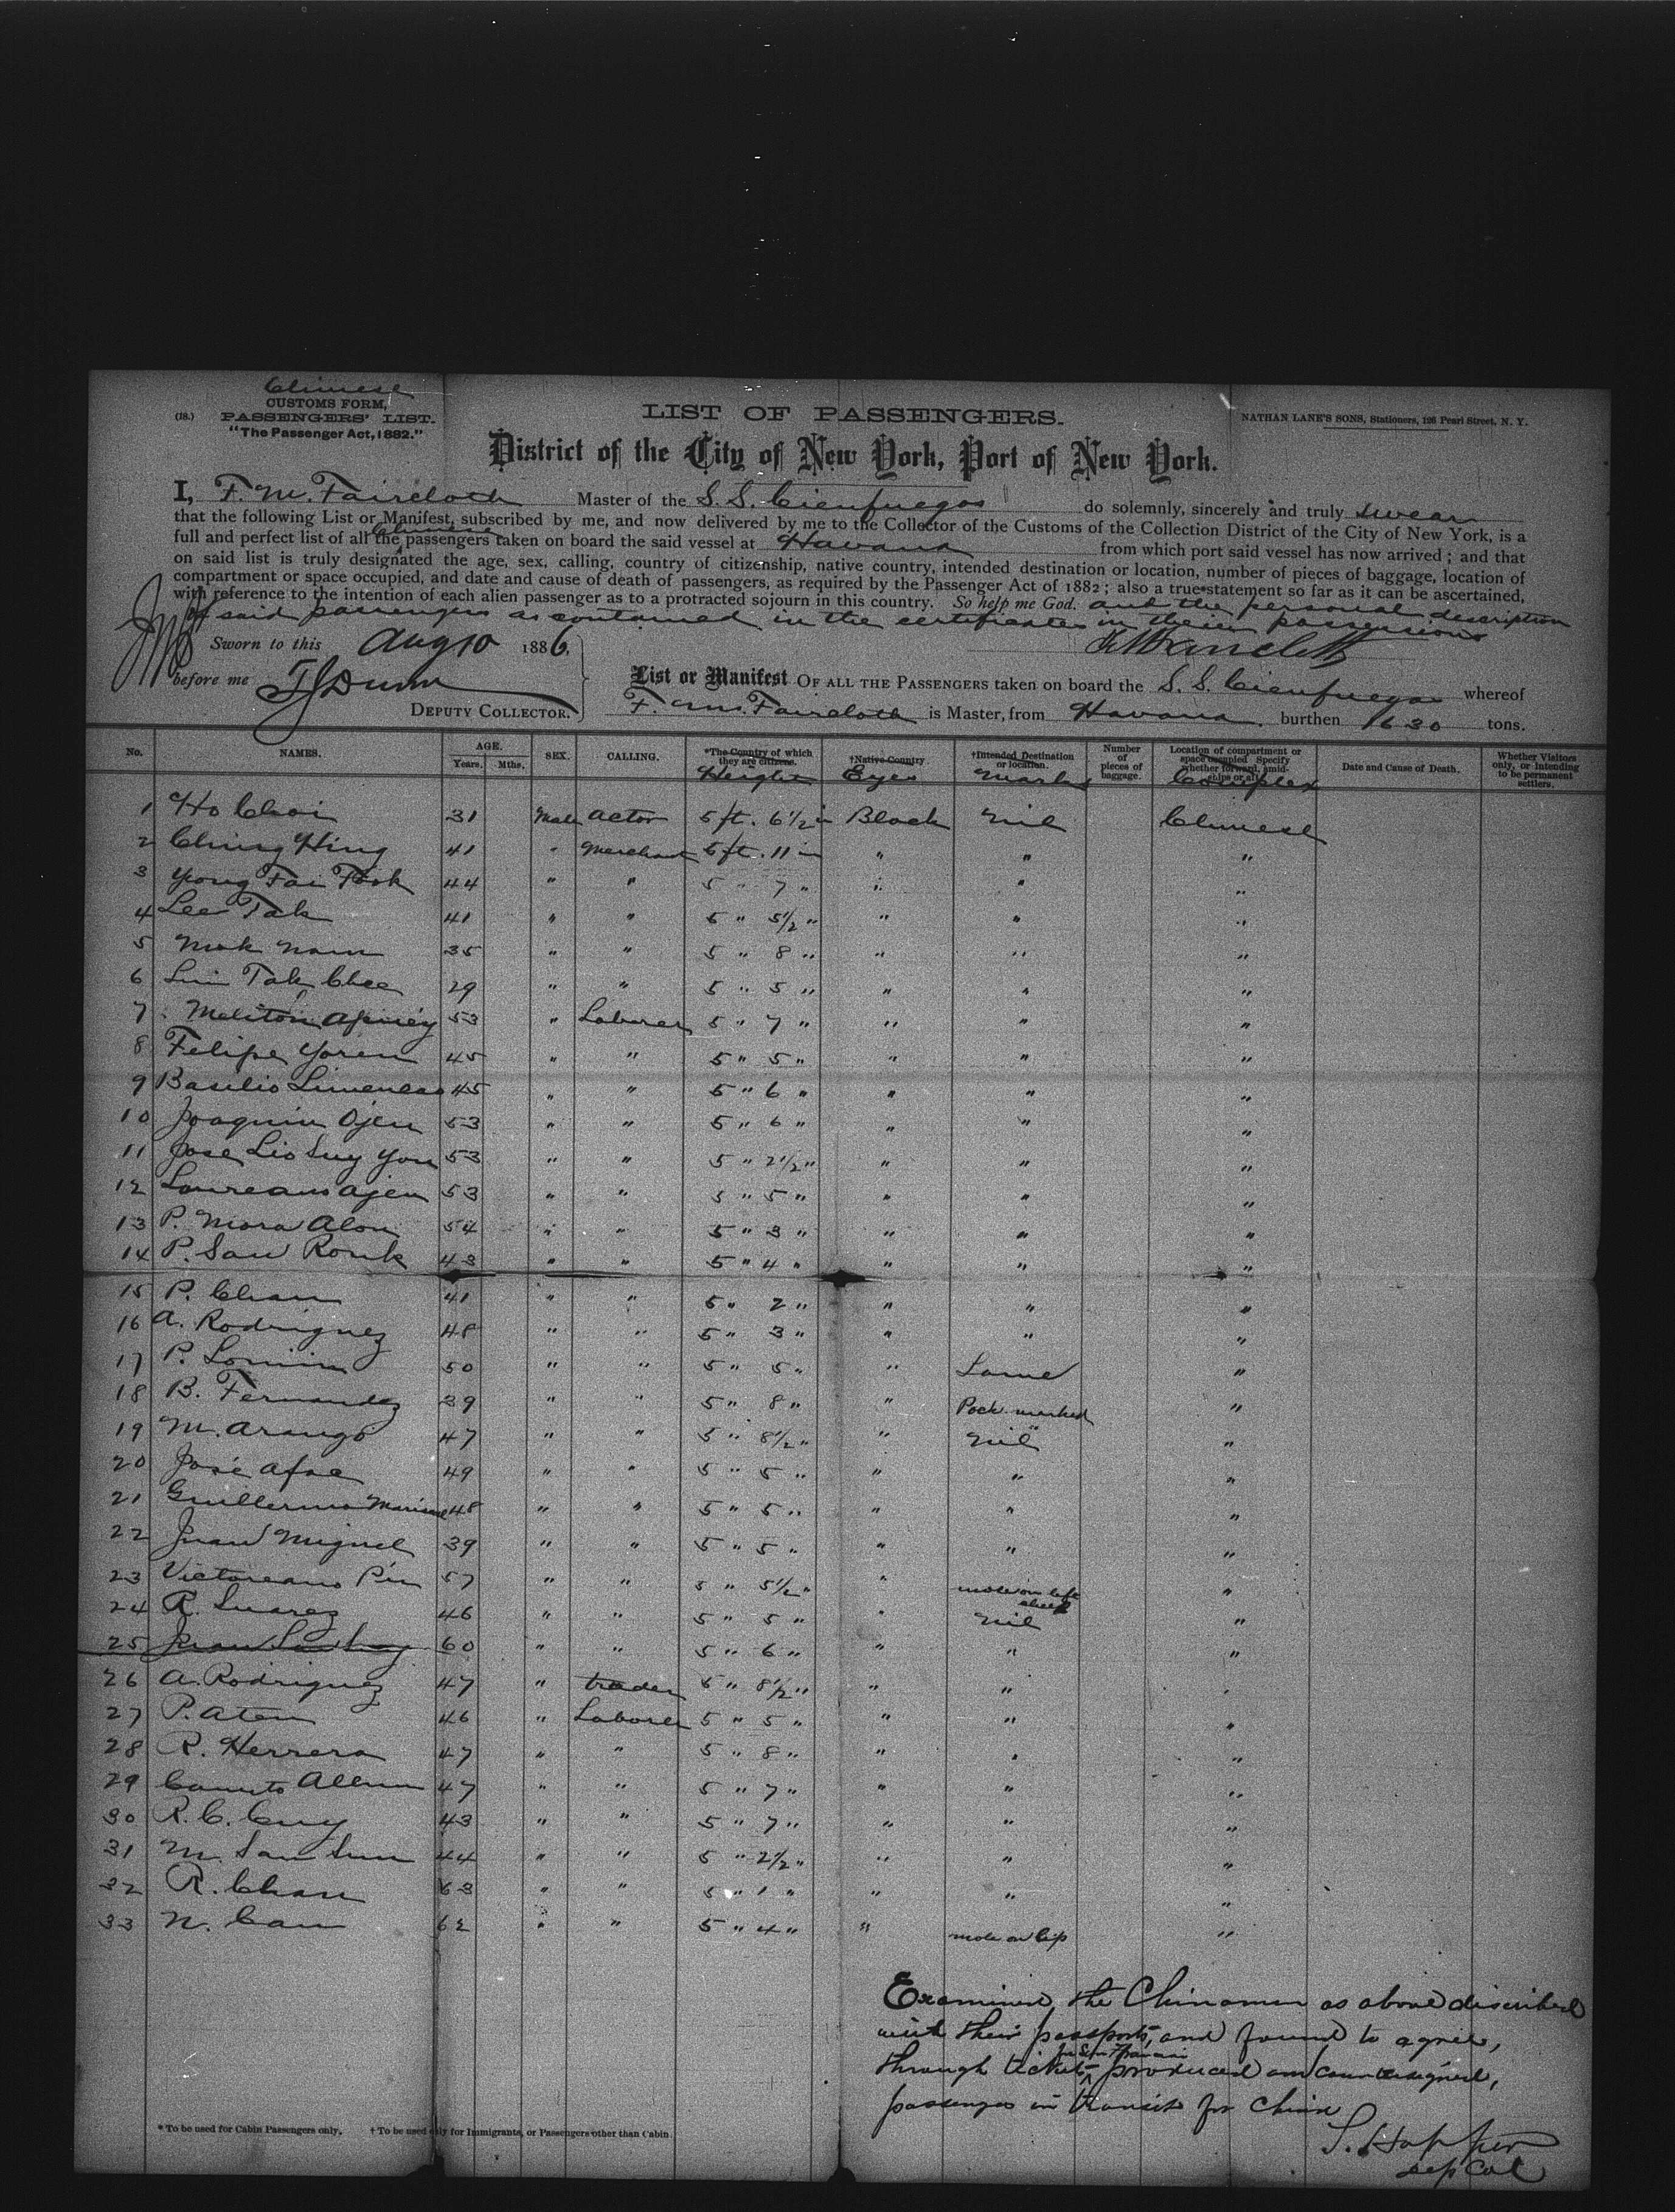 Chinese
CUSTOMS FORM,
(18.) PASSENGERS' LIST.
"The Passenger Act, 1882."
LIST OF PASSENGERS.
NATHAN LANE'S SONS, Stationers, 196 Pearl Street, N. Y.
District of the City of New York, Port of New York.
I, F. M. Faircloth Master of the S. S. Cienfuegos do solemnly, sincerely and truly swear
that the following List or Manifest, subscribed by me, and now delivered by me to the Collector of the Customs of the Collection District of the City of New York, is a
full and perfect list of all the Chinese passengers taken on board the said vessel at Havana from which port said vessel has now arrived; and that
on said list is truly designated the age, sex, calling, country of citizenship, native country, intended destination or location, number of pieces of baggage, location of
compartment or space occupied, and date and cause of death of passengers, as required by the Passenger Act of 1882; also a true statement so far as it can be ascertained,
with reference to the intention of each alien passenger as to a protracted sojourn in this country. So help me God. and the personal description
of said passengers as contained in the certificates in their possessions
Sworn to this Aug 10 1886,
before me T J Dunn
DEPUTY COLLECTOR.
List or Manifest OF ALL THE PASSENGERS taken on board the S. S. Cienfuegos whereof
F. M. Faircloth is Master, from Havana burthen 1630 tons.
No. NAMES. AGE. Years. Mths. SEX. CALLING. *The Country of which they are citizens. †Native Country †Intended Destination or location. Number of pieces of baggage. Location of compartment or space occupied Specify whether forward, amidships or aft. Date and Cause of Death. Whether Visitors only, or intending to be permanent settlers.
Height Eyes Marks Complex
1 Ho Choi 31 Male Actor 5 ft. 6 1/2 in Black Nil Chinese
2 Ching Hing 41 " Merchant 5 ft. 11 in " " "
3 Yong Tai Fook 44 " " 5 " 7 " " " "
4 Lee Tak 41 " " 5 " 5 1/2 " " " "
5 Mok Nam 35 " " 5 " 8 " " " "
6 Lui Tak Chee 29 " " 5 " 5 " " " "
7 Meliton 53 " Laborer 5 " 7 " " " "
8 Felipe Yoren 45 " " 5 " 5 " " " "
9 Basilio 45 " " 5 " 6 " " " "
10 Joaquin Ojen 53 " " 5 " 6 " " " "
11 Jose Lio Suy You 53 " " 5 " 2 1/2 " " " "
12 Laureano Ajen 53 " " 5 " 5 " " " "
13 P. Mora Alon 54 " " 5 " 3 " " " "
14 P. San Ronk 43 " " 5 " 4 " " " "
15 P. Chan 41 " " 5 " 2 " " " "
16 A. Rodriguez 48 " " 5 " 3 " " " "
17 P. 50 " " 5 " 5 " " Lame "
18 B. Fernandez 39 " " 5 " 8 " " Pock marked "
19 M. Arango 47 " " 5 " 8 1/2 " " Nil "
20 José Afoe 49 " " 5 " 5 " " " "
21 Guillermo 48 " " 5 " 5 " " " "
22 Juan Miguel 39 " " 5 " 5 " " " "
23 Victoreano Pin 57 " " 5 " 5 1/2 " " mole on left cheek "
24 R. Suarez 46 " " 5 " 5 " " Nil "
25 Juan 60 " " 5 " 6 " " " "
26 A. Rodriguez 47 " trader 5 " 8 1/2 " " " "
27 P. Aten 46 " Laborer 5 " 5 " " " "
28 R. Herrera 47 " " 5 " 8 " " " "
29 Canuto 47 " " 5 " 7 " " " "
30 R. C. Cuy 43 " " 5 " 7 " " " "
31 M. San Sun 44 " " 5 " 2 1/2 " " " "
32 R. Chan 63 " " 5 " 1 " " " "
33 N. Can 62 " " 5 " 4 " " mole on lip "
Examined the Chinamen as above described
with their passports, and found to agree,
through tickets for San Francisco produced and countersigned,
passengers in transit for China
S. Hopper
Dep Col
* To be used for Cabin Passengers only. † To be used only for Immigrants, or Passengers other than Cabin.